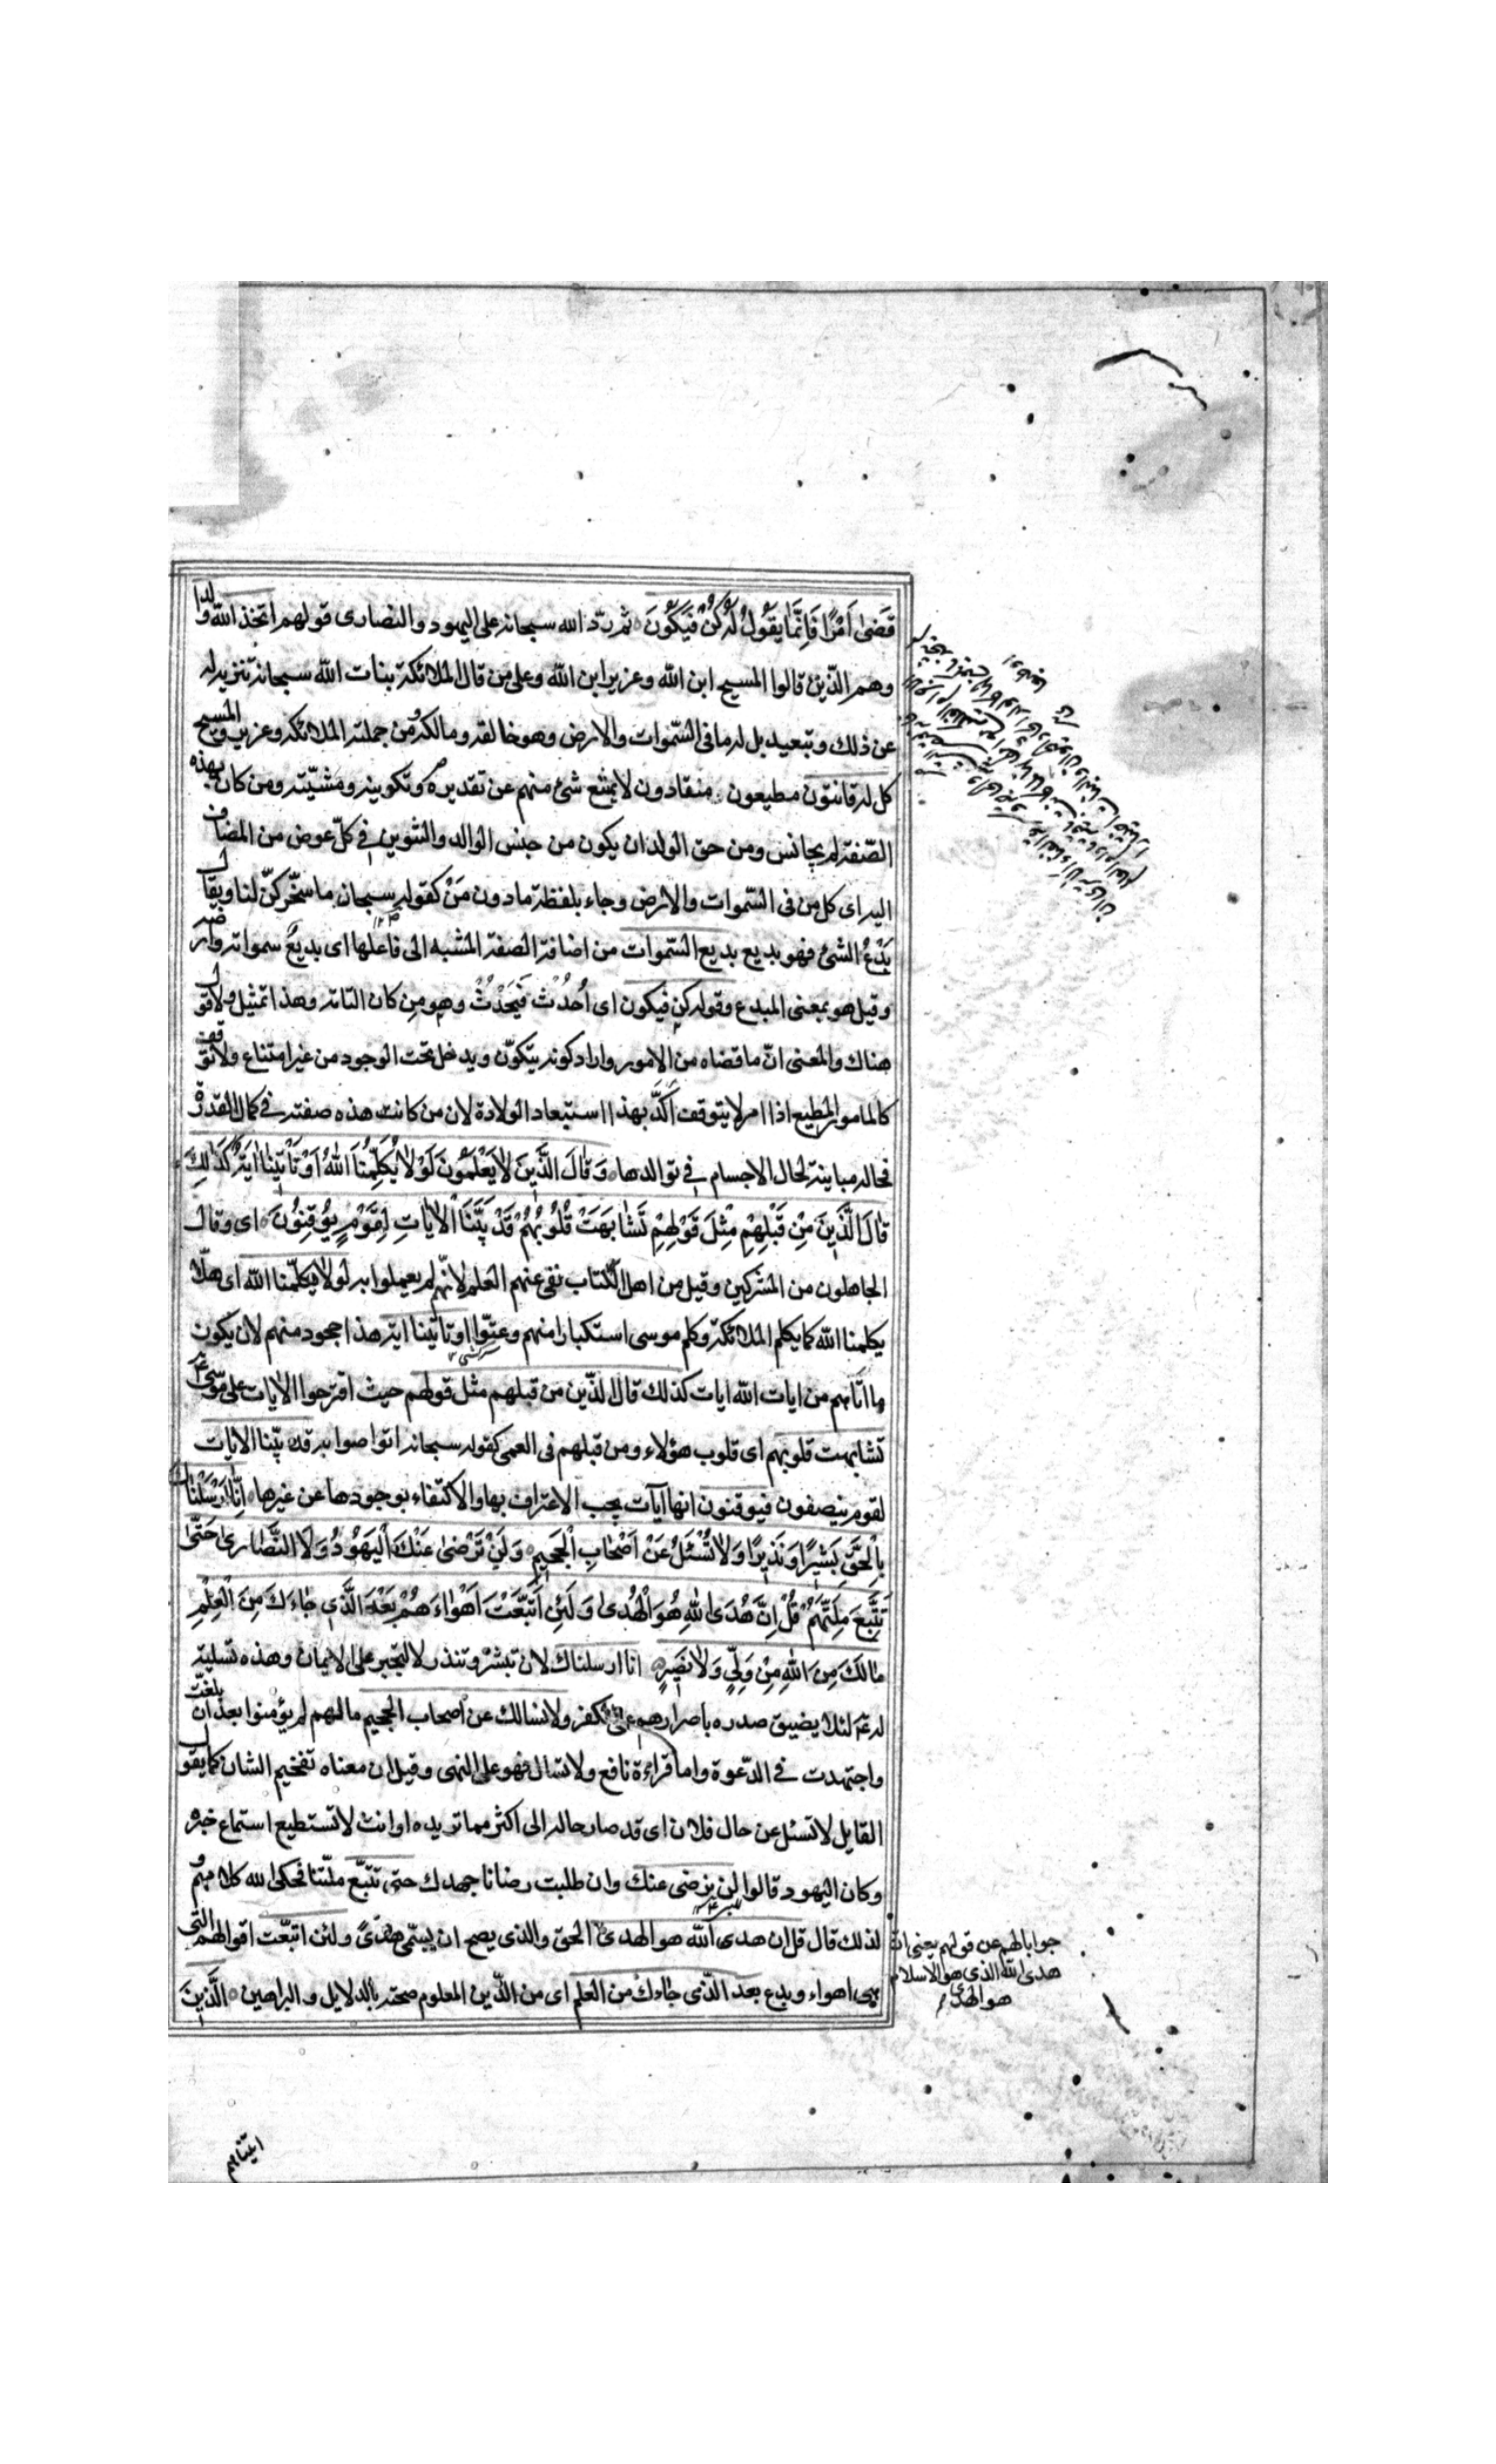 قَضىٰ اَمْرًا فَاِنَّمٰا يَقُولُ لَهُ كُنْ فَيَكُونُ ثم ردّ الله سبحانه على اليهود والنصارى قولهم اتخذ الله ولدا
وهم الّذين قالوا المسيح ابن الله وعزير ابن الله وعلى من قال الملائكة بنات الله سبحانه تنزيه له
عن ذلك وتبعيد بل له ما فى السّموات والارض وهو خالقه ومالكه ومن جملته الملائكه وعزير والمسيح
كل له قانتون مطيعون منقادون لا يمتنع شئ منهم عن تقديره وتكوينه ومشيّته ومن كان بهذه
الصّفة لم يجانس ومن حق الولد ان يكون من جنس الوالد والتنوين فى كلّ عوض من المضاف
اليه اى كل من فى السّموات والارض وجاء بلفظة ما دون مَنْ كقوله سبحان ما سخّركنّ لنا ويقال
بَدُعَ الشئ فهو بديع بديع السّموات من اضافة الصفة المشبه الى فاعلها اى بديع سمواته وارضه
وقيل هو بمعنى المبدع وقوله كن فيكون اى اُحْدُثْ فَيَحْدُثُ وهو من كان التامة وهذا تمثيل ولا قول
هناك والمعنى انّ ما قضاه من الامور واراد كونه يتكوّن ويدخل تحت الوجود من غير امتناع ولا توقف
كالمامور المطيع اذا امر لا يتوقف اكدّ بهذا استبعاد الولادة لان من كانت هذه صفته فى كمال القدرة
فحاله مباينة لحال الاجسام فى توالدها وَقٰالَ الَّذِينَ لاٰ يَعْلَمُونَ لَوْلاٰ يُكَلِّمُنَا اللّٰهُ اَوْ تَاْتِينٰا ايَةٌ كَذٰلِكَ
قٰالَ الَّذِينَ مِنْ قَبْلِهِمْ مِثْلَ قَوْلِهِمْ تَشٰابَهَتْ قُلُوبُهُمْ قَدْ بَيَّنَّا الْاٰيٰاتِ لِقَوْمٍ يُوقِنُونَ اى وقال
الجاهلون من المشركين وقيل من اهل الكتاب نفى عنهم العلم لانّهم لم يعملوا به لولا يكلّمنا الله اى هلّا
يكلمنا الله كما يكلم الملائكة وكلم موسى استكبارا منهم وعتوّا او تاتينا اية هذا جحود منهم لان يكون
ما اتاهم من ايات الله ايات كذلك قال الذّين من قبلهم مثل قولهم حيث اقترحوا الايات على موسى
تشابهت قلوبهم اى قلوب هؤلاء ومن قبلهم فى العمى كقوله سبحانه اتواصوا به قد بيّنا الايات
لقوم ينصفون فيوقنون انها آيات يجب الاعتراف بها والاكتفاء بوجودها عن غيرها اِنّٰا اَرْسَلْنٰاكَ
بِالْحَقِّ بَشِيرًا وَنَذِيرًا وَلاٰ تُسْئَلُ عَنْ اَصْحٰابِ الْجَحِيمِ وَلَنْ تَرْضىٰ عَنْكَ الْيَهُودُ وَلَا النَّصٰارىٰ حَتّىٰ
تَتَّبِعَ مِلَّتَهُمْ قُلْ اِنَّ هُدَى اللّٰهِ هُوَ الْهُدىٰ وَلَئِنِ اتَّبَعْتَ اَهْوٰاءَهُمْ بَعْدَ الَّذِي جٰاءَكَ مِنَ الْعِلْمِ
مٰالَكَ مِنَ اللّٰهِ مِنْ وَلِيٍّ وَلاٰ نَصِيرٍ انا ارسلناك لان تبشر وتنذر لا لتجبر على الايمان وهذه تسلية
له لئلا يضيق صدره باصرارهم على الكفر ولا نسالك عن اصحاب الجحيم ما لهم لم يؤمنوا بعد ان بلغت
واجتهدت فى الدّعوة واما قراءة نافع ولا تسال فهو على النهى وقيل ان معناه تفخيم الشان كما يقول
القايل لا تسئل عن حال فلان اى قد صار حاله الى اكثر مما تريده او انت لا تستطيع استماع خبره
وكان اليهود قالوا لن نرضى عنك وان طلبت رضانا جهدك حتى تتبّع ملّتنا فحكى الله كلامهم و
لذلك قال قل ان هدى الله هو الهدى الحق والذى يصح ان يسمّى هدىً ولئن اتبعّت اقوالهم التى
هى اهواء وبدع بعد الّذى جاءك من العلم اى من الدّين المعلوم صحته بالدلايل والبراهين الَّذِينَ
جوابا لهم عن قولهم يعنى ان
هدى الله الذى هو الاسلام
هو الهدى
اتيناهم